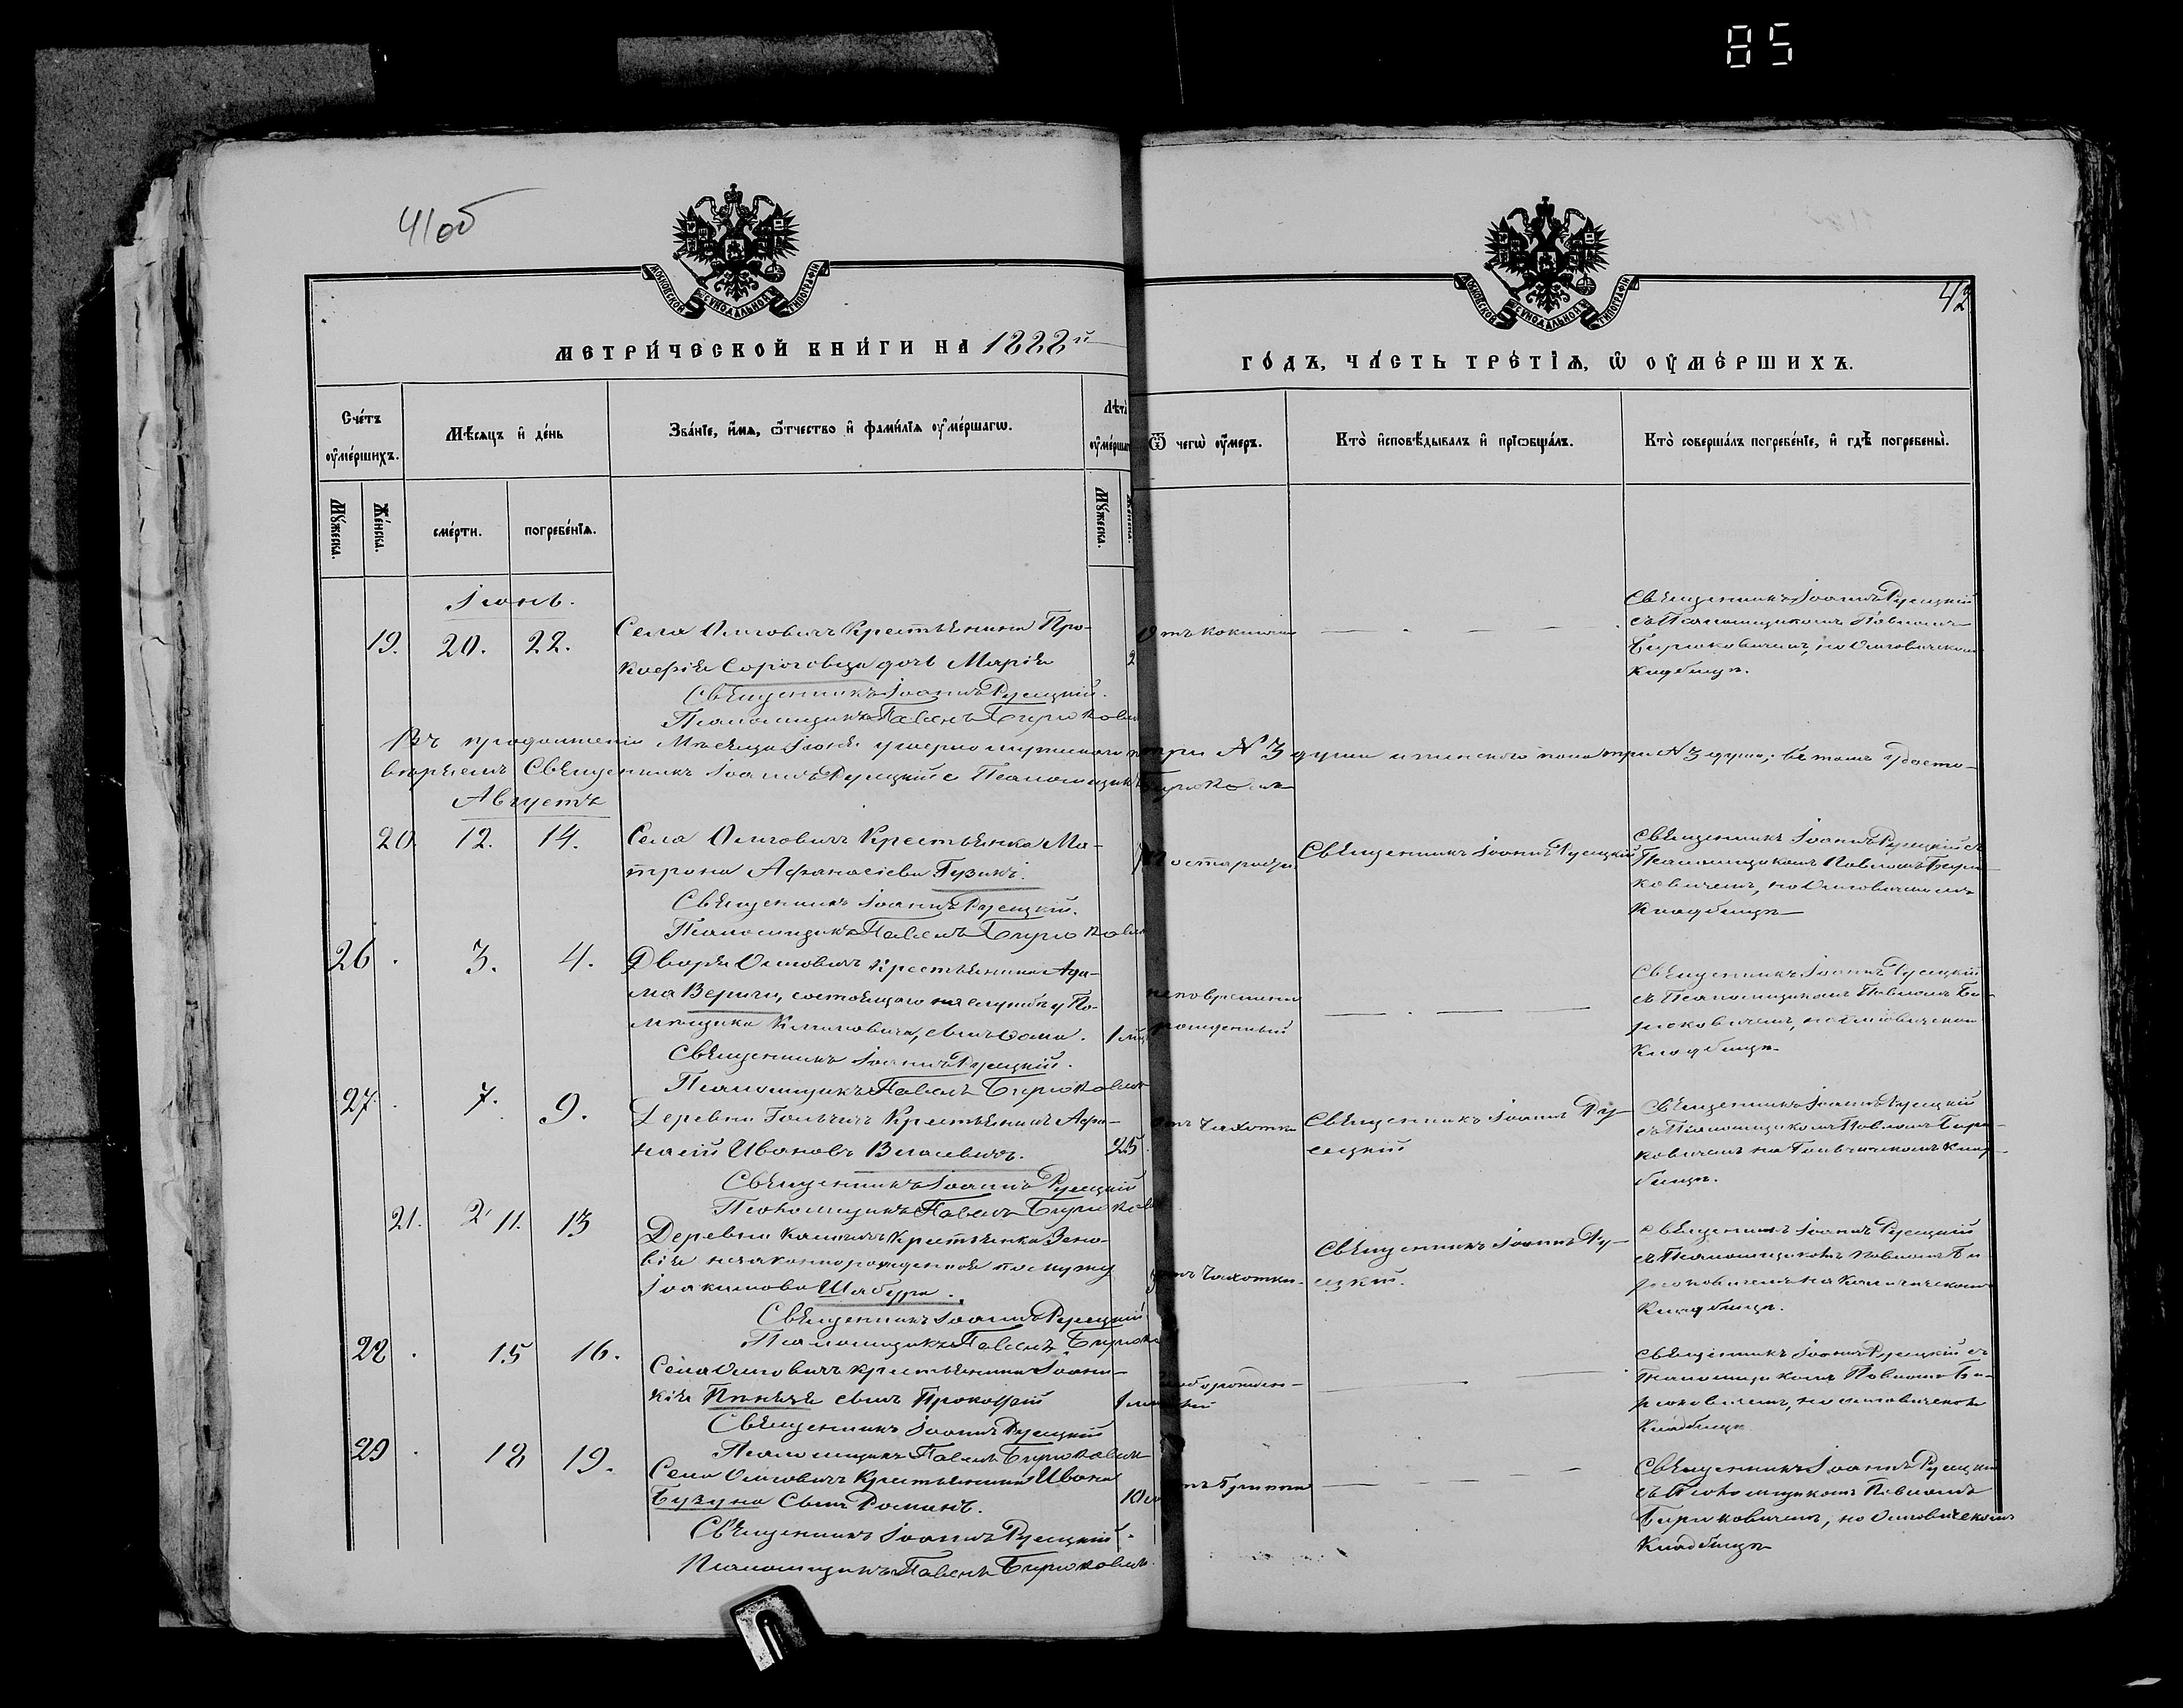 85
41об
42
МОСКОВСКОЙ СѴНОДАЛЬНОЙ ТИПОГРАФІИ
МОСКОВСКОЙ СѴНОДАЛЬНОЙ ТИПОГРАФІИ
МЕТРИ́ЧЕСКОЙ КНИ́ГИ НА 1888й
ГО́ДЪ, ЧА́СТЬ ТРЕ́ТІѦ, Ѽ ОУ҆МЕ́РШИХЪ.
Сче́тъ оу҆ме́ршихъ.
Мѣ́сяцъ и҆ де́нь
Зва́нїе, и҆́мѧ, ѻ҆́тчество и҆ фами́лїѧ оу҆ме́ршагѡ.
Лѣта̀ оу҆ме́ршаг
Ѿ чегѡ̀ оу҆́меръ.
Кто̀ и҆сповѣ́дывалъ и҆ прїѡбща́лъ.
Кто̀ соверша́лъ погребе́нїе, и҆ гдѣ̀ погребены̀.
Мꙋ́жеска.
Же́нска.
сме́рти.
погребе́нїѧ.
Мꙋ́жеска.
Іюнь.
19. 20. 22. Села Ольговичъ Крестьянина Про-
кофія дочь Марія 2
Священникъ Іоаннъ Русецкій.
Псаломщикъ Павелъ Бирюкович
Отъ коклюша
Священникъ Іоаннъ Русецкій
съ Псаломщикомъ Павломъ
Бирюковичемъ, на Ольговичском
кладбищѣ.
Въ продолженіи Мѣсяца Іюня умерло мужеского три № 3 души и женского пола три № 3 души; въ томъ удосто-
вѣряемъ Священникъ Іоаннъ Русецкій с Псаломщик Бирюкович
Августъ
20. 12. 14. Села Ольговичъ Крестьянка Ма-
трона Афанасіева Гузикъ.
Священникъ Іоаннъ Русецкій.
Псаломщикъ Павелъ Бирюкович
старости
Священникъ Іоаннъ Русецкій
Священникъ Іоаннъ Русецкій съ
Псаломщикомъ Павломъ Бирю-
ковичемъ, на Ольговичскомъ
Кладбищѣ
26. 3. 4. Двора Ольговичъ Крестьянина Ада-
ма Вериги, состоящаго на службѣ у По-
мѣщика сынъ Фома. 1
Священникъ Іоаннъ Русецкій.
Псаломщикъ Павелъ Бирюкович
неповременно
рожденный
Священникъ Іоаннъ Русецкій
съ Псаломщикомъ Павломъ Би-
рюковичемъ, на Ольговичском
Кладбищѣ
27. 7. 9. Деревни Крестьянинъ Афа-
насій Ивановъ Власевичъ. 25.
Священникъ Іоаннъ Русецкій
Псаломщикъ Павелъ Бирюков
отъ Чахотки
Священникъ Іоаннъ Ру-
сецкій
Священникъ Іоаннъ Русецкій
съ Псаломщикомъ Павломъ Бирю-
ковичемъ на клад-
бищѣ.
21. 11. 13 Деревни Крестьянка Зено-
вія незаконнорожденная по мужу
Іоакимова Шабура.
Священникъ Іоаннъ Русецкій
Псаломщикъ Павелъ Бирюко
отъ Чахотки
Священникъ Іоаннъ Ру-
сецкій.
Священникъ Іоаннъ Русецкій
съ Псаломщикомъ Павломъ Би
рюковичемъ на
Кладбищѣ.
28. 15 16. Села Ольговичъ крестьянина Іоанни-
кія сынъ Прокофій 1
Священникъ Іоаннъ Русецкій
Псаломщикъ Павелъ Бирюкович
Священникъ Іоаннъ Русецкій съ
Псаломщикомъ Павломъ Би-
рюковичемъ, на Ольговичскомъ
Кладбищѣ
29. 18 19. Села Ольговичъ Крестьянина Ивана
Бузуна Сынъ Романъ. 10
Священникъ Іоаннъ Русецкій.
Псаломщикъ Павелъ Бирюкович
Священникъ Іоаннъ Русецкій
съ Псаломщикомъ Павломъ
Бирюковичемъ, на Ольговичскомъ
Кладбищѣ